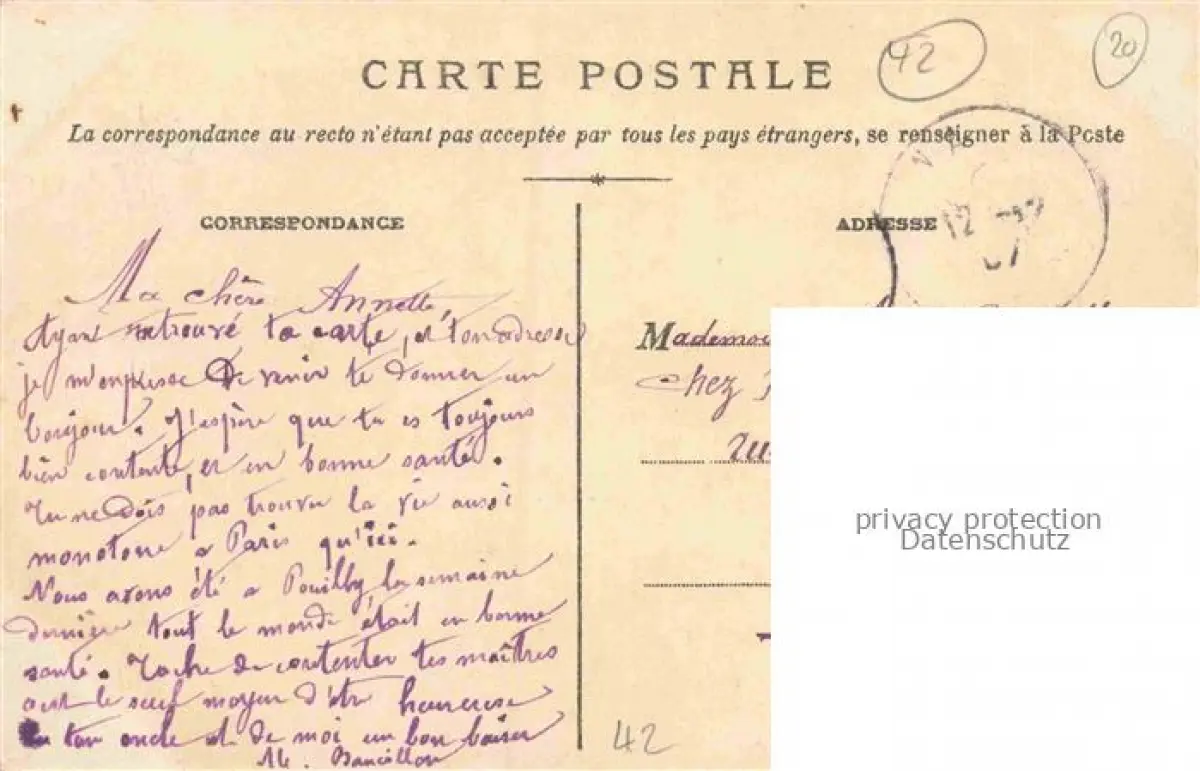 42
20
CARTE POSTALE
La correspondance au recto n'étant pas acceptée par tous les pays étrangers, se renseigner à la Poste
CORRESPONDANCE
ADRESSE
12
Ma chère Annette,
Ayant retrouvé ta carte, et ton adresse
je m'empresse de venir te donner un
bonjour. J'espère que tu es toujours
bien contente, et en bonne santé.
Tu ne dois pas trouver la vie aussi
monotone a Paris qu'ici.
Nous avons été a Pouilly la semaine
dernière tout le monde était en bonne
santé. Tache de contenter tes maîtres
c'est le seul moyen d'être heureuse
ton oncle et de moi un bon baiser
M.
Mademoi
chez
rue
42
privacy protection
Datenschutz